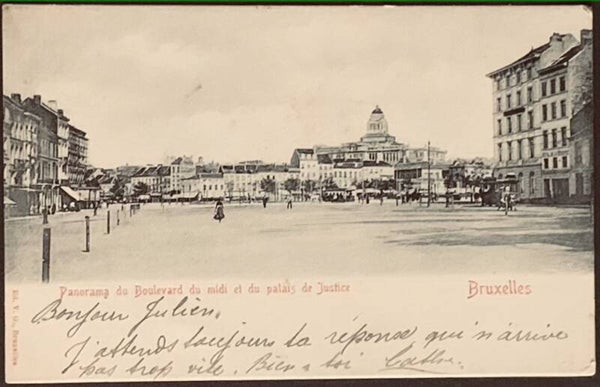 Panorama du Boulevard du midi et du palais de Justice
Bruxelles
Bonjour Julien,
J'attends toujours ta réponse qui n'arrive
pas trop vite. Bien à toi Cathe.